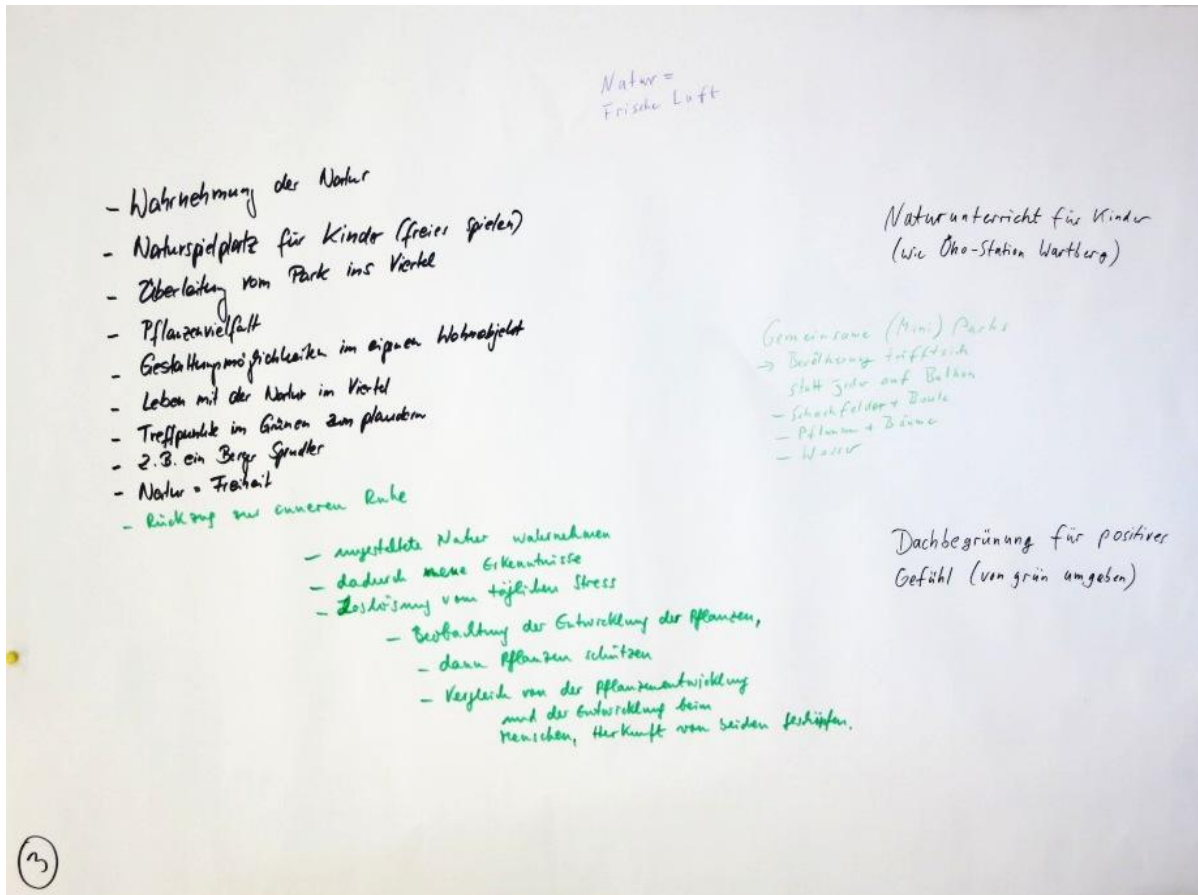 Natur =
Frische Luft
- Wahrnehmung der Natur
- Naturspielplatz für Kinder (freies Spielen)
- Überleitung vom Park ins Viertel
- Pflanzenvielfalt
- Gestaltungsmöglichkeiten im eigenen Wohnobjekt
- Leben mit der Natur im Viertel
- Treffpunkte im Grünen zum plaudern
- z.B. ein Berger Sprudler
- Natur = Freiheit
- Rückzug zur inneren Ruhe
- ungestaltete Natur wahrnehmen
- dadurch neue Erkenntnisse
- Loslösung vom täglichen Stress
- Beobachtung der Entwicklung der Pflanzen,
- dann Pflanzen schützen
- Vergleich von der Pflanzenentwicklung
und der Entwicklung beim
Menschen, Herkunft von beiden Geschöpfen.
Naturunterricht für Kinder
(wie Öko-Station Wartberg)
Gemeinsame (Mini) Parks
→ Bevölkerung trifft sich
statt jeder auf Balkon
- Schachfelder + Boule
- Pflanzen + Bäume
- Wasser
Dachbegrünung für positives
Gefühl (von grün umgeben)
3